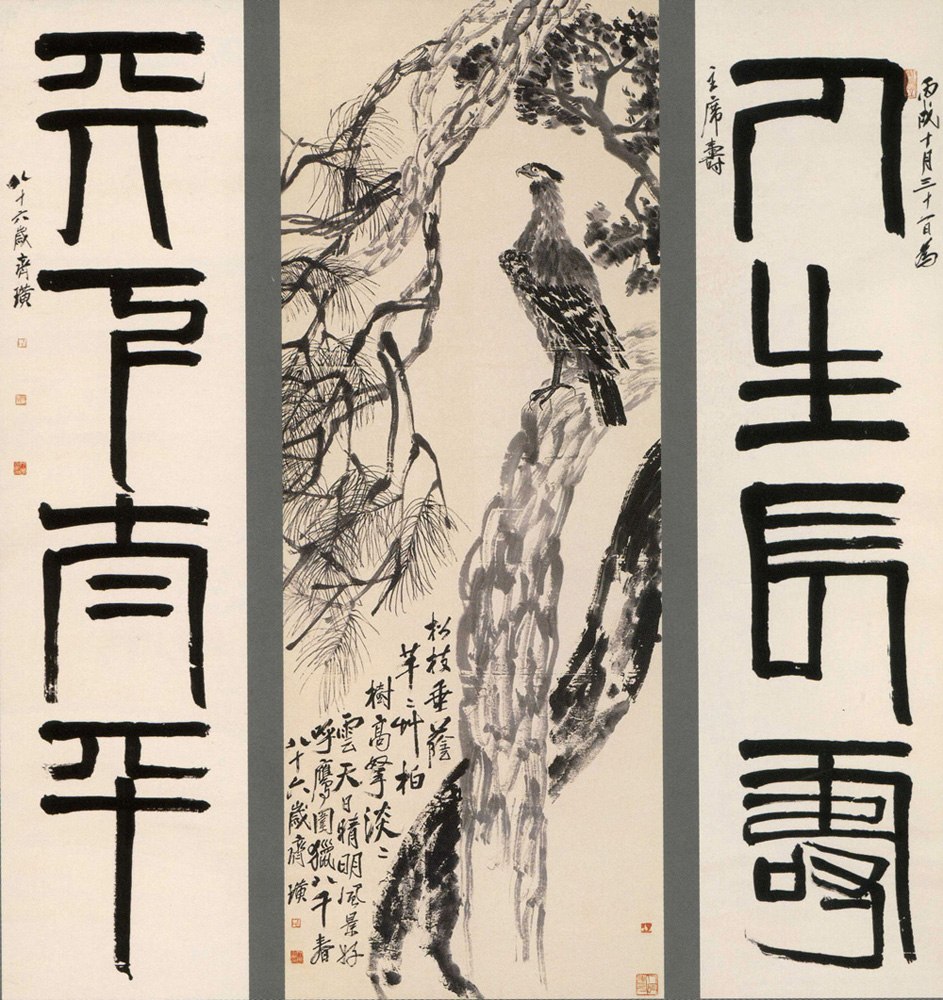 人生長壽
丙戌十月三十一日為
主席壽
松枝垂蔭
芊〻艸柏
樹高擎淡〻
雲天日晴明風景好
呼鷹圍獵八千春
八十六歲齊璜
天下太平
八十六歲齊璜